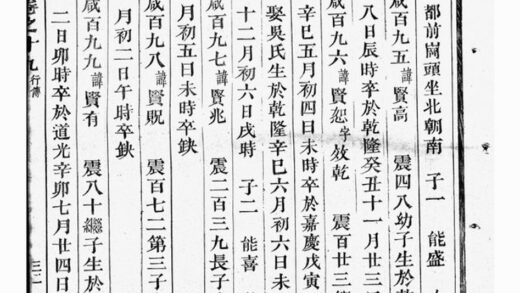 都前崗頭坐北朝南 子一 能盛
咸百九五諱賢高 震四八幼子生於
八日辰時卒於乾隆癸丑十一月廿三
咸百九六諱賢恕字效乾 震百廿三
辛巳五月初四日未時卒於嘉慶戊寅
娶吳氏生於乾隆辛巳六月初六日未
十二月初六日戌時 子二 能喜
咸百九七諱賢兆 震二百三九長子
月初五日未時卒缺
咸百九八諱賢貺 震百七二第三子
月初二日午時卒缺
咸百九九諱賢有 震八十繼子生於
二日卯時卒於道光辛卯七月廿四日
卷之十九行傳